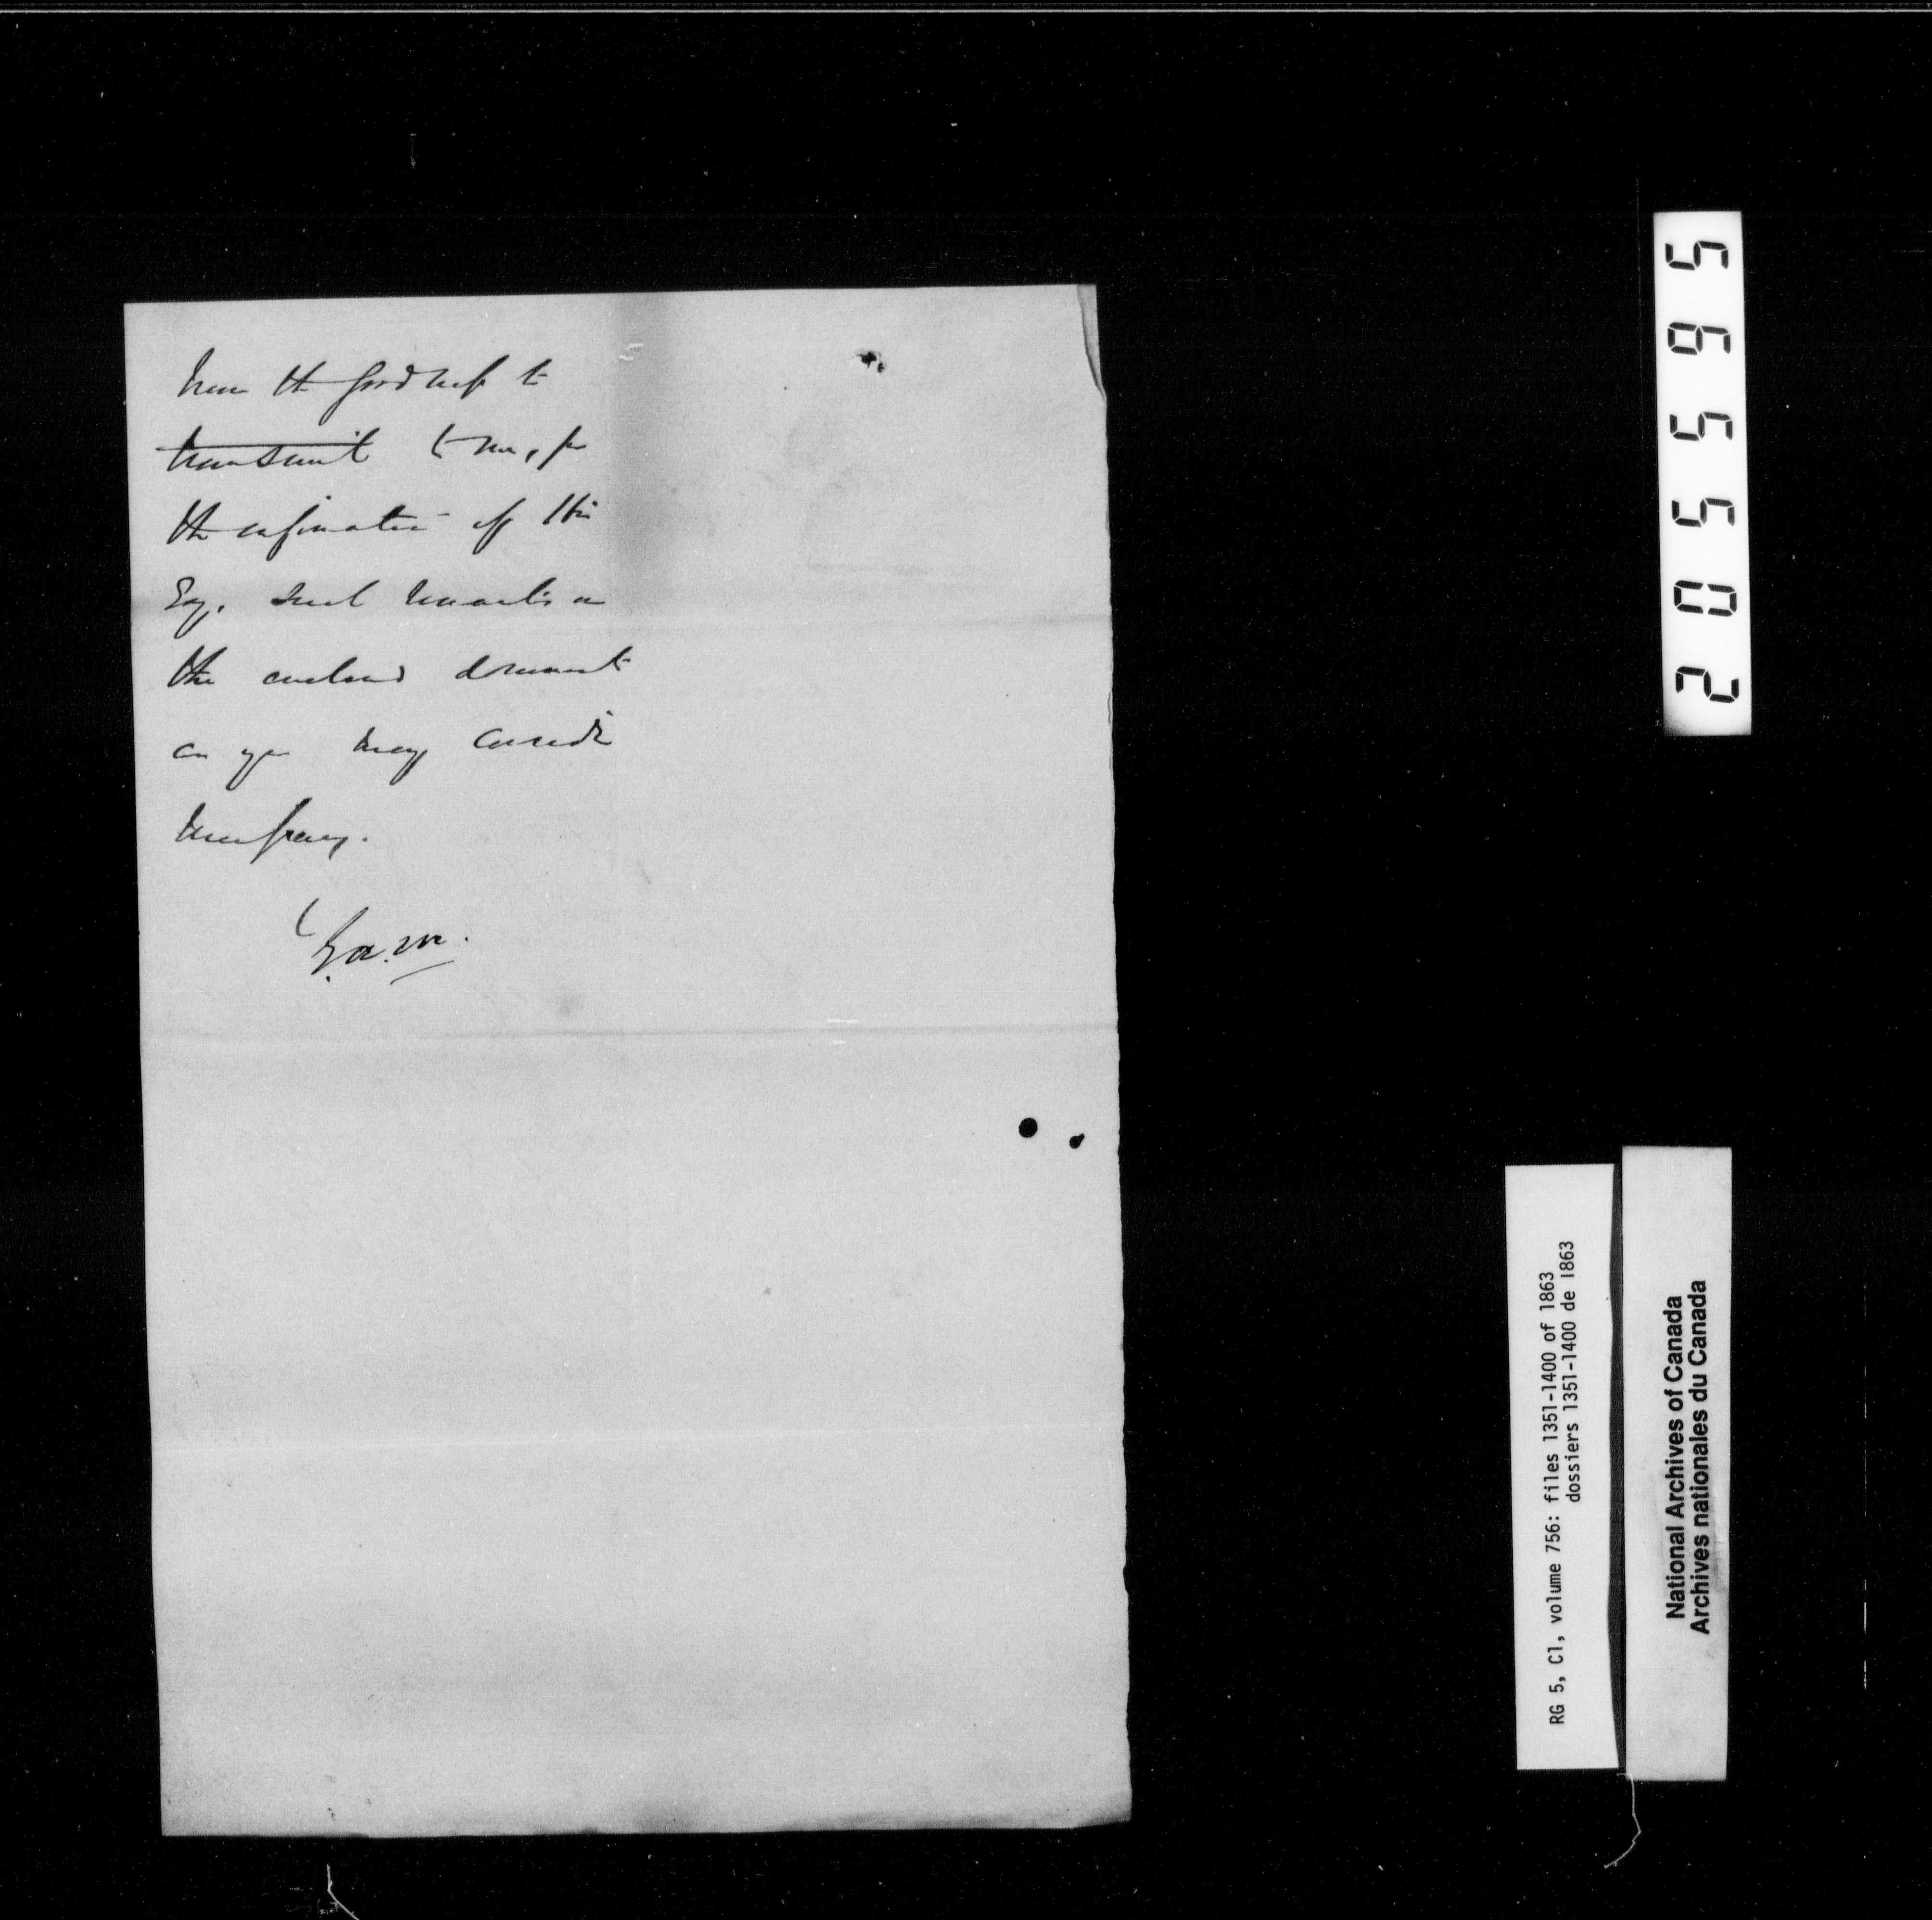 have the goodness to
transmit to me, for
the information of His
Exy. such remarks on
the enclosed document
as you may consider
necessary.
E.A.M.
205595
RG 5, C1, volume 756: files 1351-1400 of 1863
dossiers 1351-1400 de 1863
National Archives of Canada
Archives nationales du Canada